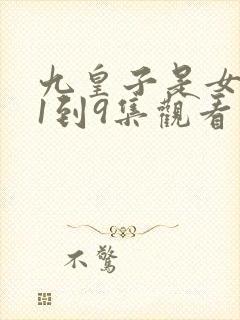 九皇子是女
1到9集觀看
不驚